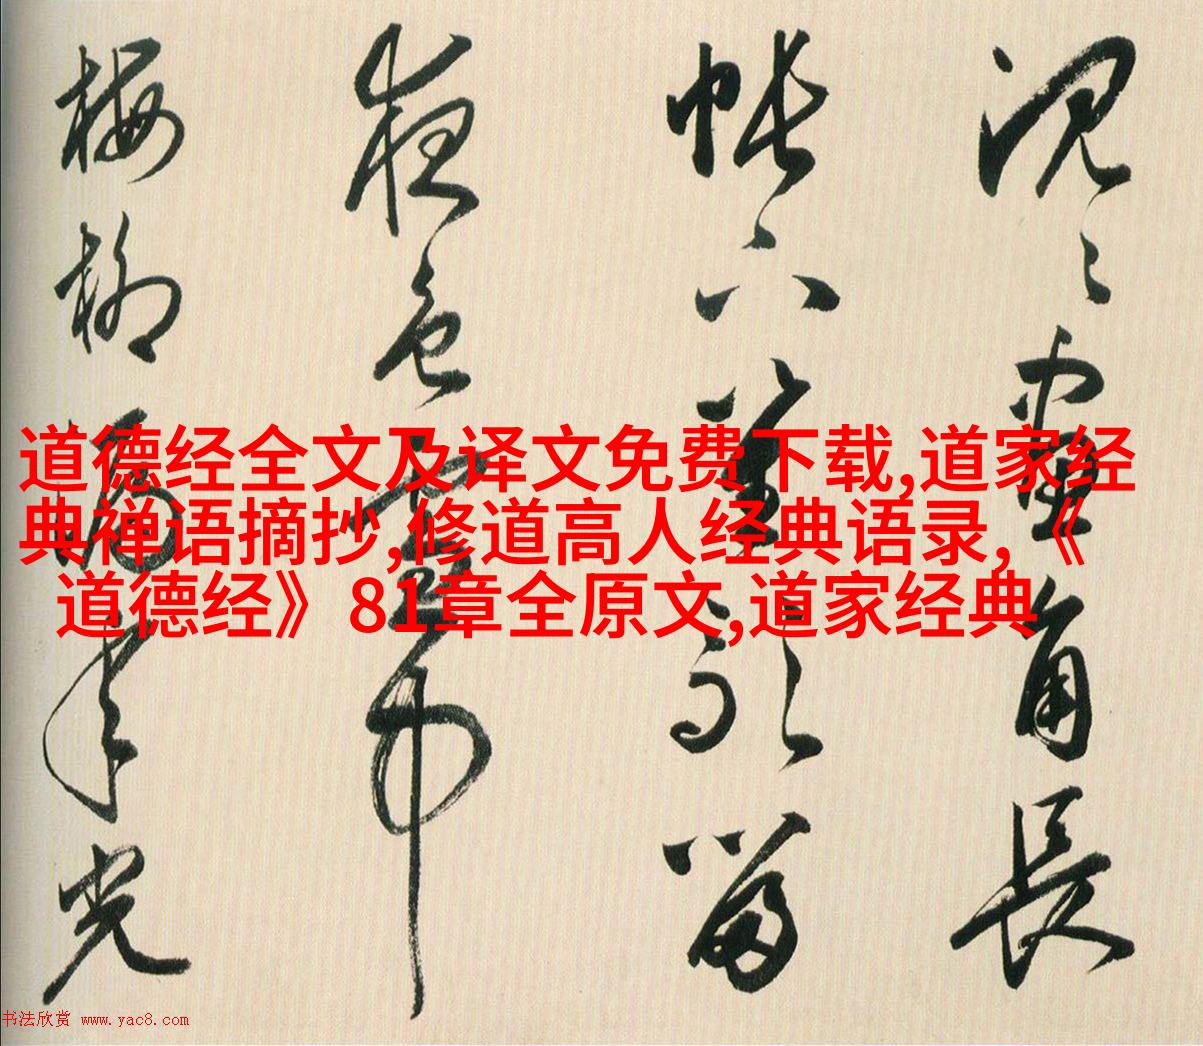 道德经全文及译文免费下载,道家经
典禅语摘抄,修道高人经典语录,《
道德经》81章全原文,道家经典
沉〻畫角長
帳留
夜色
梅柳年光
书法欣赏 www.yac8.com